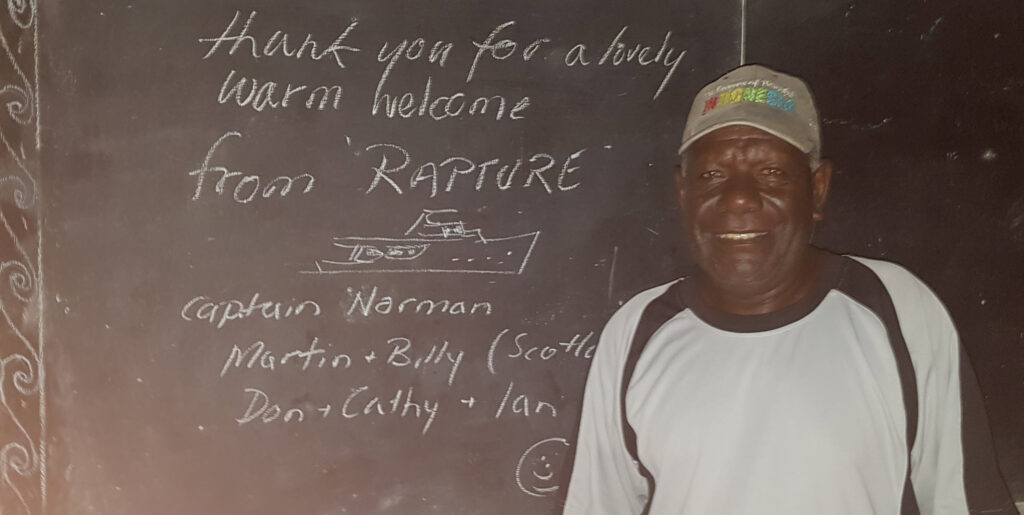 thank you for a lovely
warm welcome
from 'RAPTURE'
captain Norman
Martin + Billy (Scotla
Don + Cathy + Ian
INDONESIA